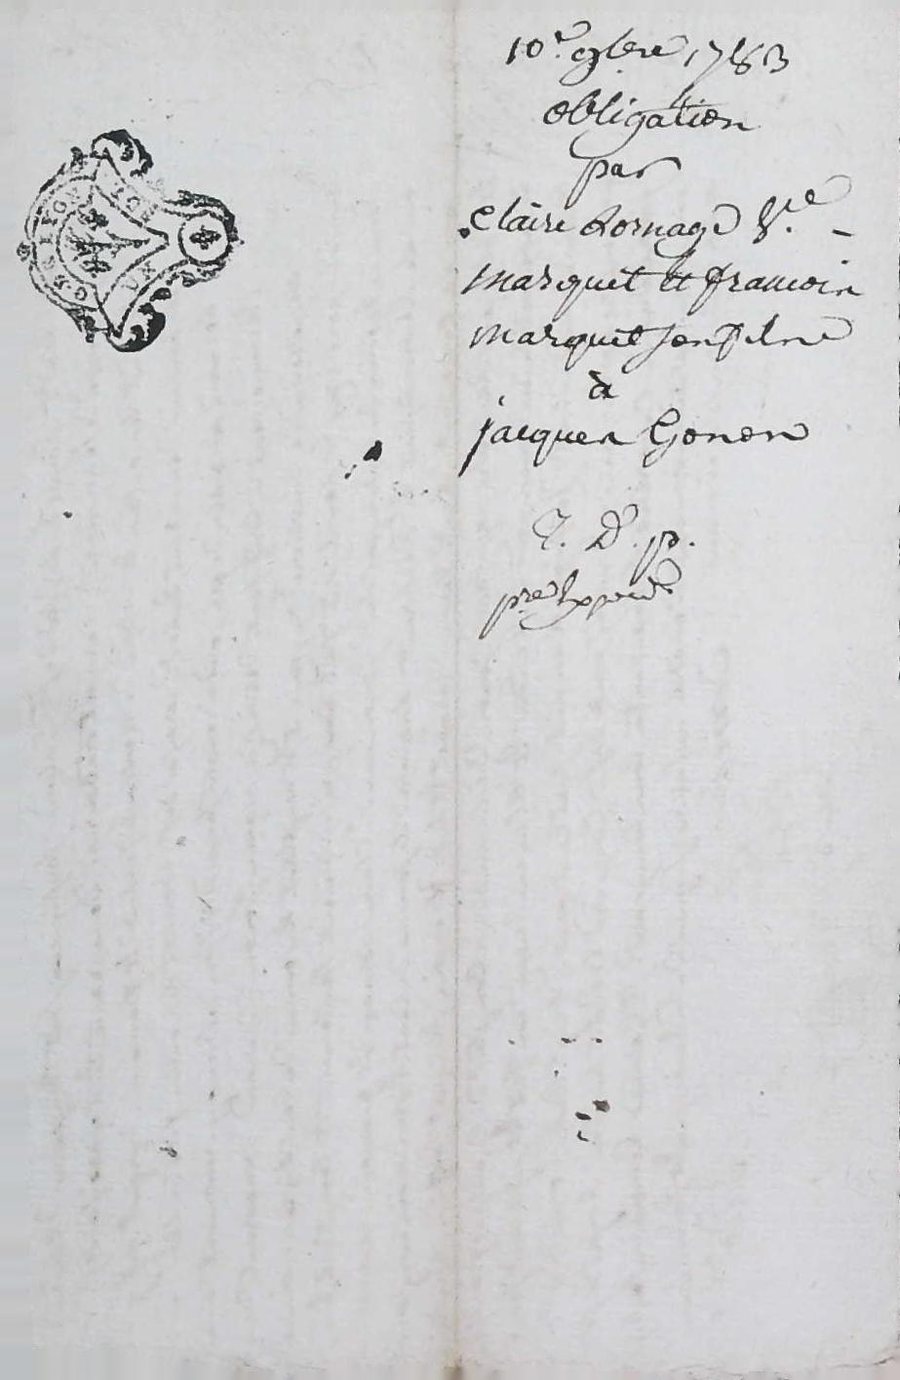 10.e 9bre 1783
obligation
par
Claire Dornage V.e
Marquet et francois
Marquet son fils
à
jacques Gonon
D. p.
p.re